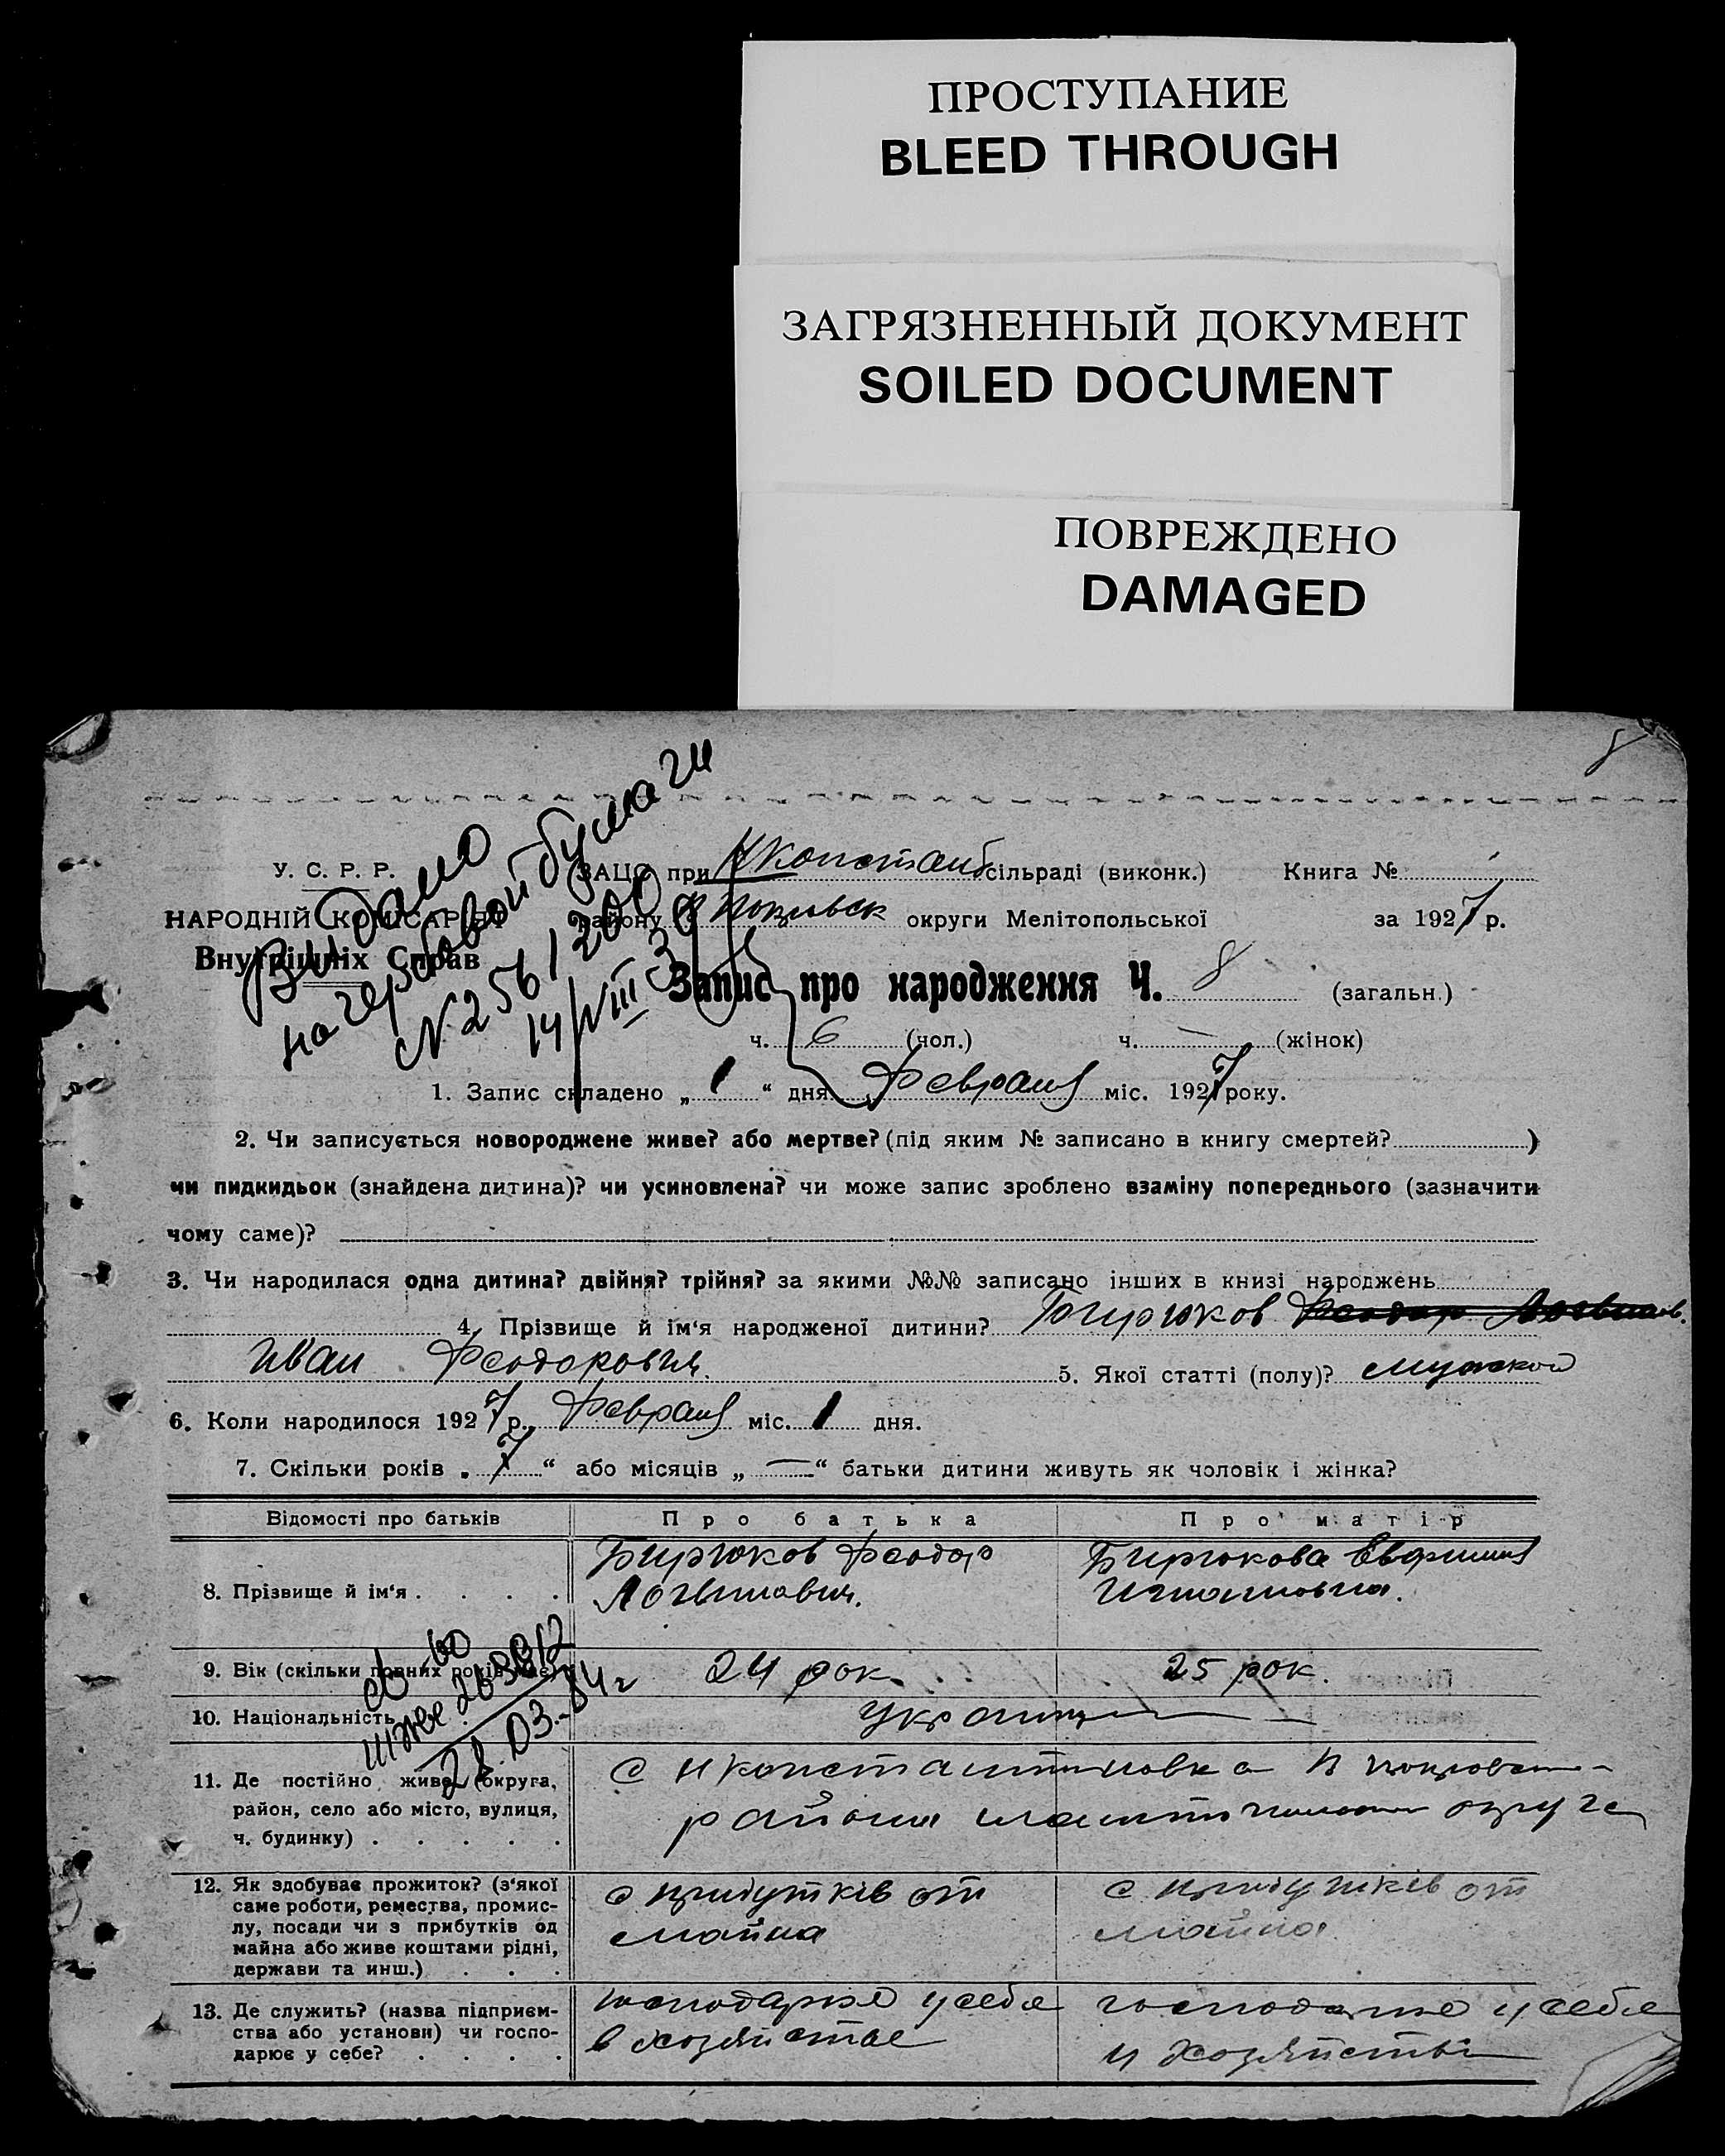 ПРОСТУПАНИЕ
BLEED THROUGH
ЗАГРЯЗНЕННЫЙ ДОКУМЕНТ
SOILED DOCUMENT
ПОВРЕЖДЕНО
DAMAGED
8
Видано
на гербовой бумаги
N 256/200
14/VIII 30
У. С. Р. Р.
НАРОДНІЙ КОМІСАРІЯТ
Внутрішніх Справ
ЗАЦС при Нконстан сільраді (виконк.) Книга №
району округи Мелітопольської за 1927 р.
Запис про народження Ч. 8 (загальн.)
ч. 6 (чол.) ч. — (жінок)
1. Запис складено „ 1 “ дня Февраля міс. 1927 року.
2. Чи записується новороджене живе? або мертве? (під яким № записано в книгу смертей? )
чи пидкидьок (знайдена дитина)? чи усиновлена? чи може запис зроблено взаміну попереднього (зазначити
чому саме)?
3. Чи народилася одна дитина? двійня? трійня? за якими №№ записано інших в книзі народжень
4. Прізвище й ім‘я народженої дитини? Бирюков Феодор
Иван Феодорович. 5. Якої статті (полу)? мужской
6. Коли народилося 1927 р. Февраля міс. 1 дня.
7. Скільки років „ 7 “ або місяців „ — “ батьки дитини живуть як чоловік і жінка?
Відомості про батьків Про батька Про матір
8. Прізвище й ім‘я . . . . Бирюков Феодор Логвинович. Бирюкова Евфимия Игнатовна.
9. Вік (скільки повних років має) 24 рок. 25 рок.
св-во
28.03.-84 г
10. Національність Украинц
11. Де постійно живе (округа,
район, село або місто, вулиця,
ч. будинку) . . . . .
с Нконстантиновка
района округа
12. Як здобуває прожиток? (з‘якої
саме роботи, ремества, промис-
лу, посади чи з прибутків од
майна або живе коштами рідні,
держави та инш.) . . .
с прибутків от
майна
с прибутків от
майна
13. Де служить? (назва підприєм-
ства або установи) чи госпо-
дарює у себе? . . . .
господарює у себе
в хозяйстве
господарює у себе
у хозяйстві